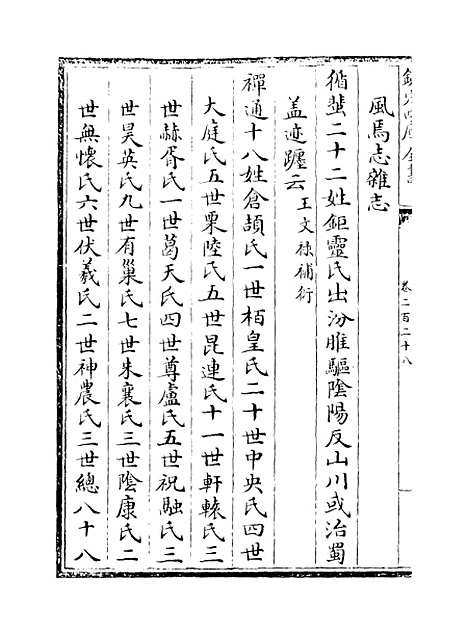 欽定四庫全書
卷二百二十八
風焉志雜志
循蜚二十二姓鉅靈氏出汾脽驅陰陽反山川或治蜀
蓋迹躔云王文祿補衍
禪通十八姓倉頡氏一世栢皇氏二十世中央氏四世
大庭氏五世栗陸氏五世昆連氏十一世軒轅氏三
世赫胥氏一世葛天氏四世尊盧氏五世祝融氏三
世昊英氏九世有巢氏七世朱襄氏三世陰康氏二
世無懷氏六世伏羲氏二世神農氏三世總八十八